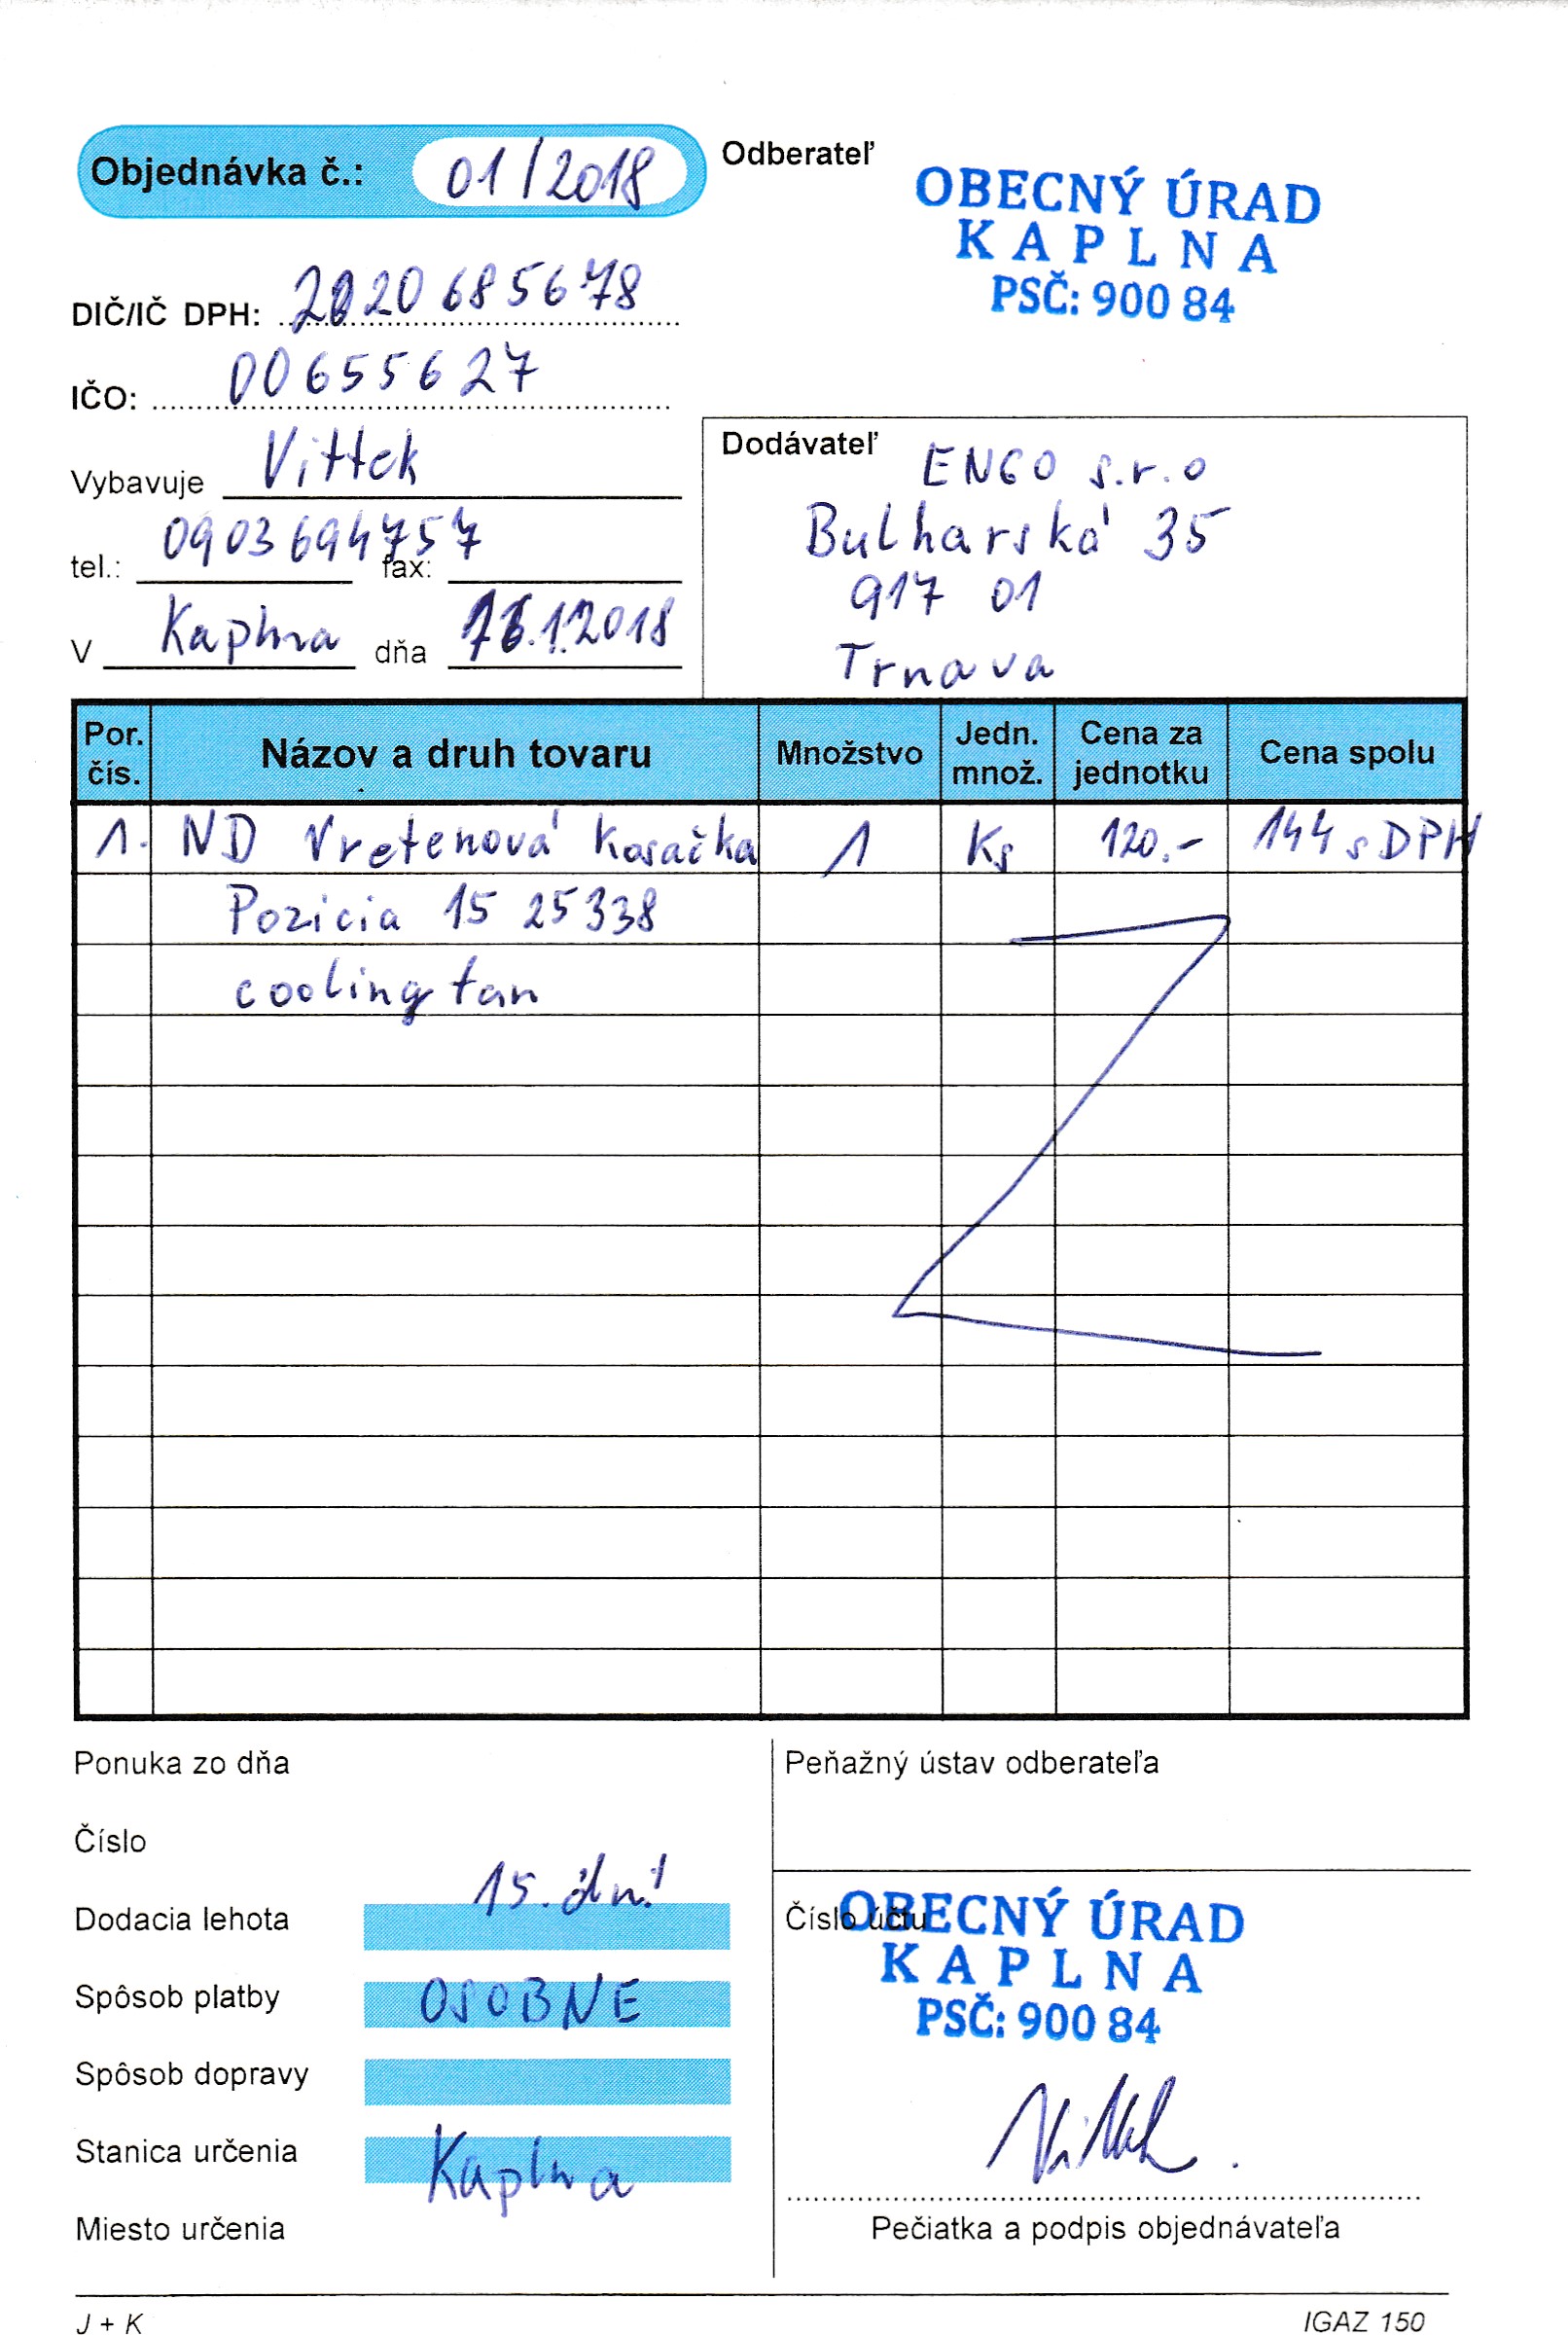 Objednávka č.: 01/2018
Odberateľ
OBECNÝ ÚRAD
KAPLNA
PSČ: 900 84
DIČ/IČ DPH: 2020685678
IČO: 00655627
Vybavuje Vittek
tel.: 0903694757 fax:
V Kaplna dňa 16.1.2018
Dodávateľ ENGO s.r.o
Bulharská 35
917 01
Trnava
Por. čís. Názov a druh tovaru Množstvo Jedn. množ. Cena za jednotku Cena spolu
1. ND Vretenová kosačka 1 Ks 120.- 144 s DPH
Pozicia 15 25338
cooling fan
Ponuka zo dňa
Číslo
Dodacia lehota 15. dní
Spôsob platby OSOBNE
Spôsob dopravy
Stanica určenia Kaplna
Miesto určenia
Peňažný ústav odberateľa
Číslo účtu
OBECNÝ ÚRAD
KAPLNA
PSČ: 900 84
Vittek
Pečiatka a podpis objednávateľa
J + K
IGAZ 150